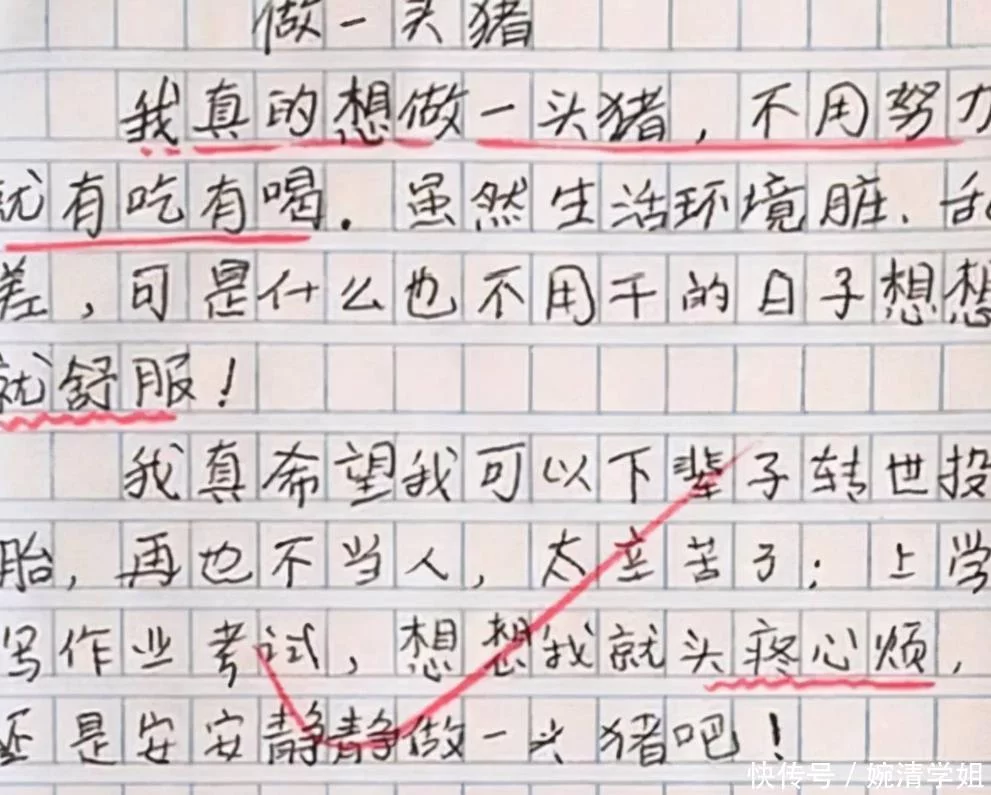 做一头猪
我真的想做一头猪，不用努力
就有吃有喝。虽然生活环境脏、乱
差，可是什么也不用干的日子想想
就舒服！
我真希望我可以下辈子转世投
胎，再也不当人，太辛苦了；上学
写作业考试，想想我就头疼心烦，
还是安安静静做一头猪吧！
快传号 / 婉清学姐